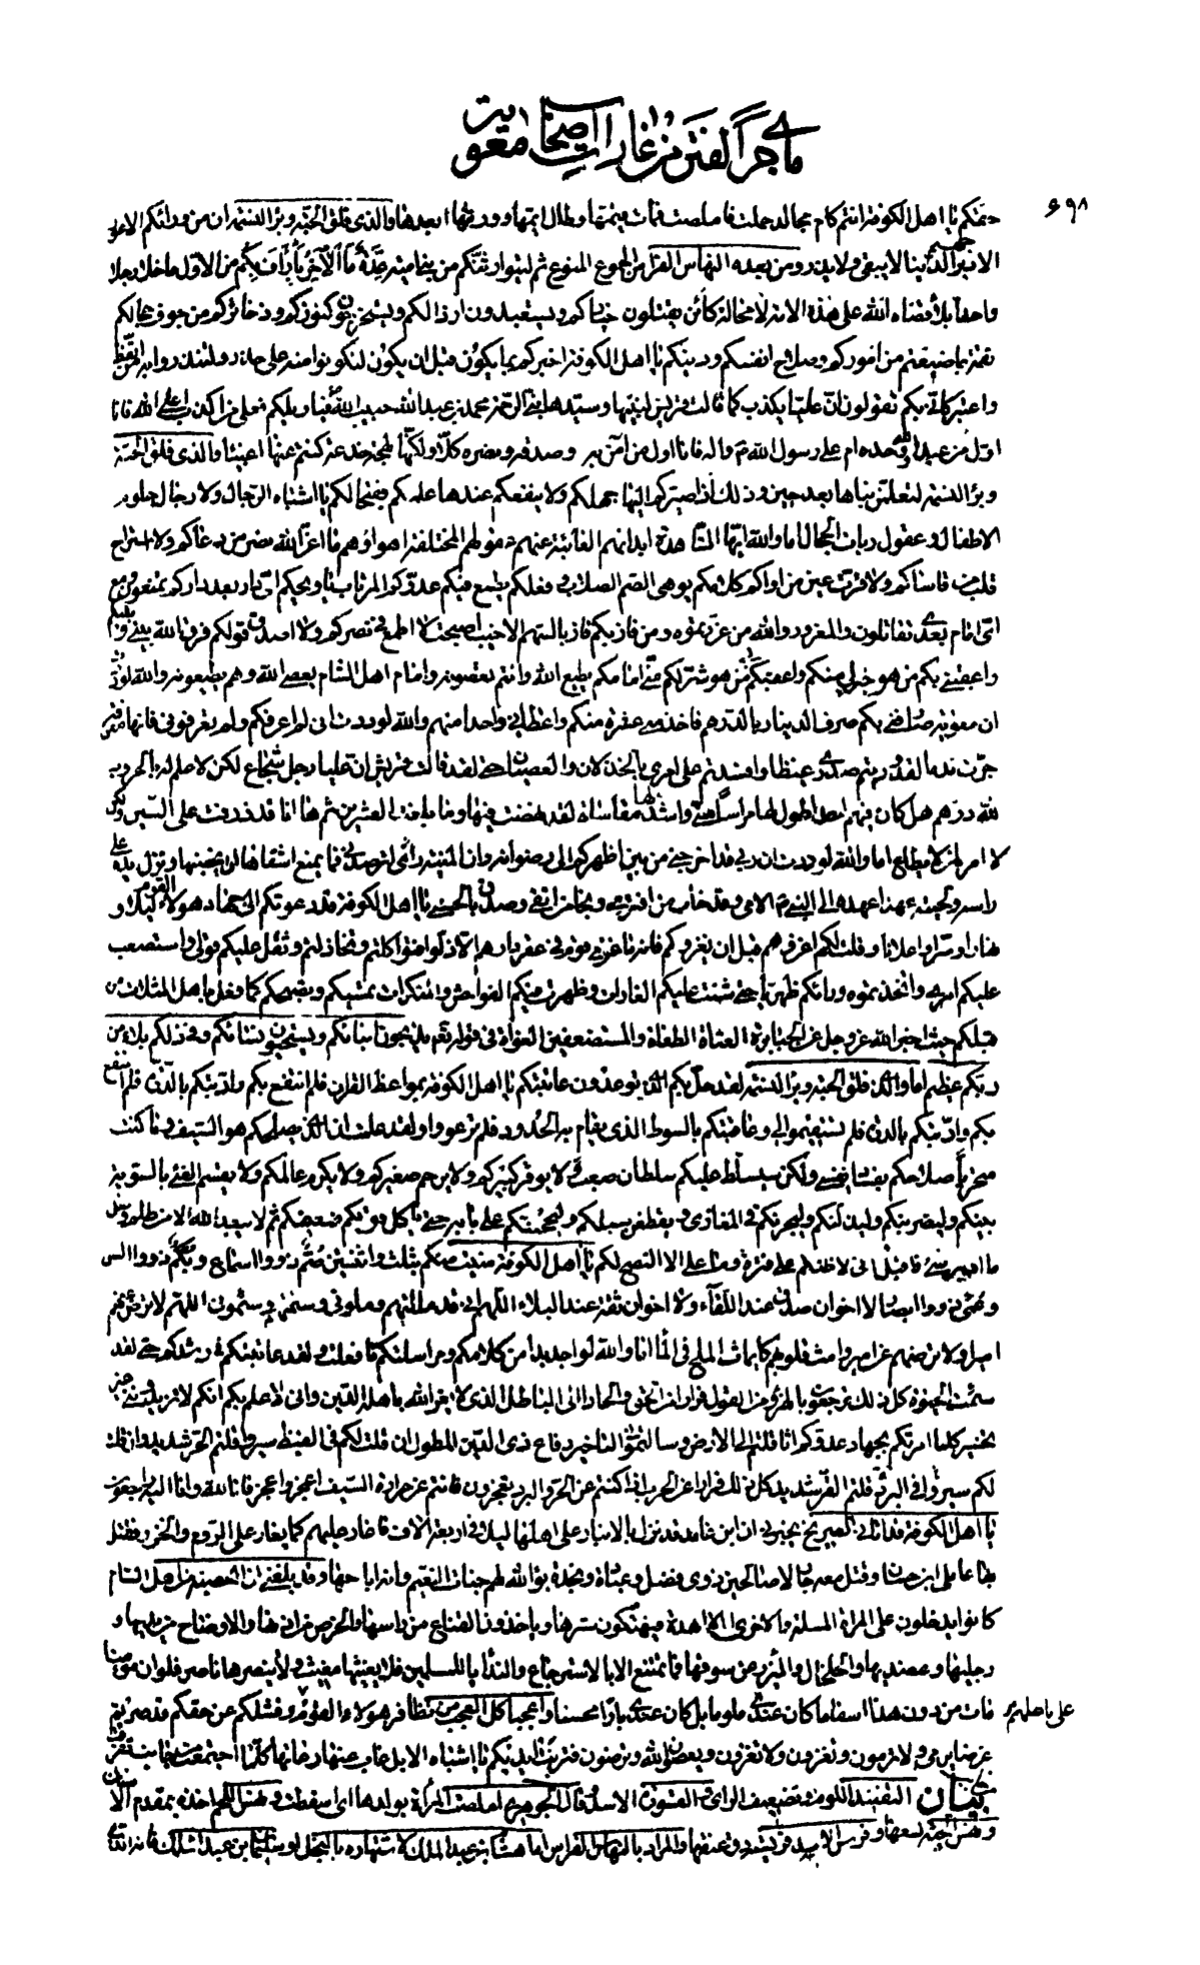 ما جرى من الفتن من غارات أصحاب معوية
۶۹۸
حقكم يا اهل الكوفة انتم كام مجالد حملت فاملصت فمات قيمها وطال ايمها وورثها ابعدها والذي فلق الحبة وبرأ النسمة ان من ورائكم الاعور
الادبر جهنم الدنيا لا يبقى ولا يذر ومن بعده النهاس الفراس الجموع المنوع ثم ليتوارثنكم من بني امية عدة ما الآخر بأرأف بكم من الاول ما خلا رجلا
واحدا بلاء قضاه الله على هذه الامة لا محالة كائن يقتلون خياركم ويستعبدون ارذالكم ويستخرجون كنوزكم وذخائركم من جوف حجالكم
نقمة بما ضيعتم من اموركم وصلاح انفسكم ودينكم يا اهل الكوفة اخبركم بما يكون قبل ان يكون لتكونوا منه على حذر ولتنذروا به من اتعظ
واعتبر كأني بكم تقولون ان عليا يكذب كما قالت قريش لنبيها وسيدها نبي الرحمة محمد بن عبد الله حبيب الله فيا ويلكم فعلى من اكذب اعلى الله فانا
اول من عبد الله وحده ام على رسول الله ص واله فانا اول من آمن به وصدقه ونصره كلا ولكنها لهجة خدعة كنتم عنها اغنياء والذي فلق الحبة
وبرأ النسمة لتعلمن نبأها بعد حين وذلك اذا صيركم اليها جهلكم ولا ينفعكم عندها علمكم فقبحا لكم يا اشباه الرجال ولا رجال حلوم
الاطفال وعقول ربات الحجال اما والله ايها الشاهدة ابدانهم الغائبة عنهم عقولهم المختلفة اهواؤهم ما اعز الله نصر من دعاكم ولا استراح
قلب من قاساكم ولا قرت عين من اواكم كلامكم يوهي الصم الصلاب وفعلكم يطمع فيكم عدوكم المرتاب يا ويحكم اي دار بعد داركم تمنعون ومع
اي امام بعدي تقاتلون والمغرور والله من غررتموه ومن فاز بكم فاز بالسهم الاخيب اصبحت لا اطمع في نصركم ولا اصدق قولكم فرق الله بيني وبينكم
واعقبني بكم من هو خير لي منكم واعقبكم من هو شر لكم مني امامكم يطيع الله وانتم تعصونه وامام اهل الشام يعصي الله وهم يطيعونه والله لوددت
ان معوية صارفني بكم صرف الدينار بالدرهم فاخذ مني عشرة منكم واعطاني واحدا منهم والله لوددت ان لم اعرفكم ولم تعرفوني فانها معرفة
جرت ندما لقد وريتم صدري غيظا وافسدتم علي امري بالخذلان والعصيان حتى لقد قالت قريش ان عليا رجل شجاع لكن لا علم له بالحروب
لله درهم هل كان فيهم احد اطول لها مراسا مني واشد لها مقاساة لقد نهضت فيها وما بلغت العشرين ثم ها انا قد ذرفت على الستين ولكن
لا امر لمن لا يطاع اما والله لوددت ان ربي قد اخرجني من بين اظهركم الى رضوانه وان المنية لترصدني فما يمنع اشقاها ان يخضبها ونزل يده على
راسه ولحيته عهدا عهده الي النبي الامي وقد خاب من افترى ونجا من اتقى وصدق بالحسنى يا اهل الكوفة قد دعوتكم الى جهاد هؤلاء القوم ليلا و
نهارا وسرا واعلانا وقلت لكم اغزوهم قبل ان يغزوكم فانه ما غزي قوم في عقر دارهم الا ذلوا فتواكلتم وتخاذلتم وثقل عليكم قولي واستصعب
عليكم امري واتخذتموه وراءكم ظهريا حتى شنت عليكم الغارات وظهرت فيكم الفواحش والمنكرات تمسيكم وتصبحكم كما فعل باهل المثلات من
قبلكم حيث اخبر الله عز وجل عن الجبابرة العتاة الطغاة والمستضعفين الغواة في قوله تعالى يذبحون ابناءكم ويستحيون نساءكم وفي ذلكم بلاء من
ربكم عظيم اما والذي فلق الحبة وبرأ النسمة لقد حل بكم الذي توعدون عاتبتكم يا اهل الكوفة بمواعظ القران فلم انتفع بكم وادبتكم بالدرة فلم
تستقيموا لي وعاقبتكم بالسوط الذي يقام به الحدود فلم ترعووا ولقد علمت ان الذي يصلحكم هو السيف وما كنت
متحريا صلاحكم بفساد نفسي ولكن سيسلط عليكم سلطان صعب لا يوقر كبيركم ولا يرحم صغيركم ولا يكرم عالمكم ولا يقسم الفيء بالسوية
بينكم وليضربنكم وليذلنكم وليجرنكم في المغازي ويقطعن سبيلكم وليحجبنكم على بابه حتى يأكل قويكم ضعيفكم ثم لا يبعد الله الا من ظلم ولقل
ما ادبر شيء فاقبل اني لاظنكم على فترة وما علي الا النصح لكم يا اهل الكوفة منيت منكم بثلث واثنتين صم ذووا اسماع وبكم ذووا السن
وعمي ذووا ابصار لا اخوان صدق عند اللقاء ولا اخوان ثقة عند البلاء اللهم اني قد مللتهم وملوني وسئمتهم وسئموني اللهم لا ترض عنهم
اميرا ولا ترضهم عن امير وامث قلوبهم كما يماث الملح في الماء اما والله لو اجد بدا من كلامكم ومراسلتكم ما فعلت ولقد عاتبتكم في رشدكم حتى لقد
سئمت الحيوة كل ذلك ترجعون بالهزء من القول فرارا من الحق والحادا الى الباطل الذي لا يعز الله باهله الدين واني لاعلم بكم انكم لا تزيدونني غير
تخسير كلما امرتكم بجهاد عدوكم اثاقلتم الى الارض وسالتموني التاخير دفاع ذي الدين المطول ان قلت لكم في القيظ سيروا قلتم الحر شديد وان قلت
لكم سيروا في البرد قلتم القر شديد كل ذلك فرارا عن الحرب اذا كنتم عن الحر والبرد تعجزون فانتم عن حرارة السيف اعجز واعجز فانا لله وانا اليه راجعون
يا اهل الكوفة قد اتاني الصريخ يخبرني ان ابن غامد قد نزل بالانبار على اهلها ليلا في اربعة الاف فاغار عليهم كما يغار على الروم والخزر فقتل
بها عاملي ابن حسان وقتل معه رجالا صالحين ذوي فضل وعبادة ونجدة بوأ الله لهم جنات النعيم وانه اباحها وقد بلغني ان العصبة من اهل الشام
كانوا يدخلون على المرأة المسلمة والاخرى المعاهدة فيهتكون سترها وياخذون القناع من راسها والخرص من اذنها والاوضاح من يديها و
رجليها وعضديها والخلخال والمئزر عن سوقها فما تمتنع الا بالاسترجاع والنداء يا للمسلمين فلا يغيثها مغيث ولا ينصرها ناصر فلو ان مؤمنا
مات من دون هذا اسفا ما كان عندي ملوما بل كان عندي بارا محسنا واعجبا كل العجب من تظافر هؤلاء القوم وفشلكم عن حقكم قد صرتم
على باطلهم
غرضا يرمى ولا ترمون وتغزون ولا تغزون ويعصى الله وترضون فتربت ايديكم يا اشباه الابل غاب عنها رعاتها كلما اجتمعت من جانب تفرقت
من جانب
بيان التفنيد اللوم وتضعيف الراي والقشون قال الجوهري املصت المرأة بولدها اي اسقطت
لسعها وفرس الاسد فريسته دق عنقها والمراد بالنهاس الفراس اما هشام بن عبد الملك لاشتهاره بالبخل او سليمان بن عبد الملك